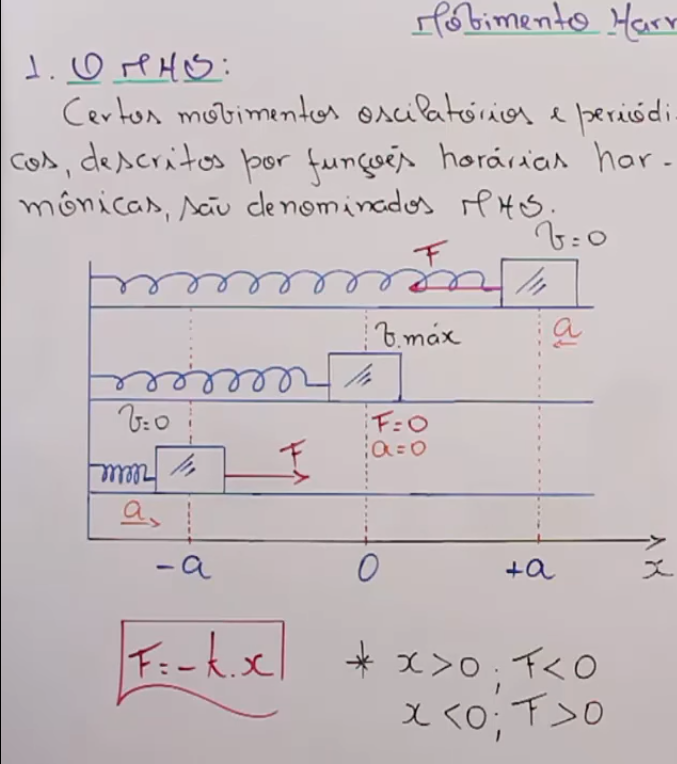 Movimento Harm
1. O MHS:
Certos movimentos oscilatórios e periódi-
cos, descritos por funções horárias har-
mônicas, são denominados MHS.
v=0
F
a
v.máx
v=0
F=0
F
a=0
a
-a 0 +a x
F=-k.x * x>0; F<0
x<0; F>0